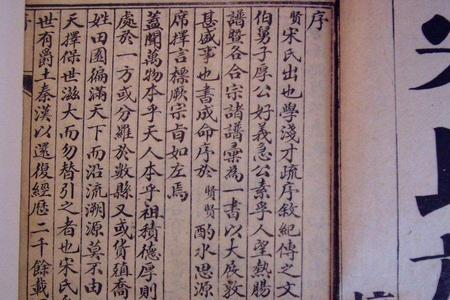 序
賢宋氏出也學淺才疏序敘紀傳之文
伯舅子厚公好義急公素孚人望熱腸
譜各合宗諸譜彙為一書以大展敦
甚盛事也書成命序於賢賢酌水思源
席擇言標厥宗旨如左焉
蓋聞萬物本乎天人本乎祖積德厚則
處於一方或分離於數縣又或貨殖喬
姓田園徧滿天下而沿流溯源莫不由
天擇保世滋大而勿替引之者也宋氏
世有爵土秦漢以還復經歷二千餘載